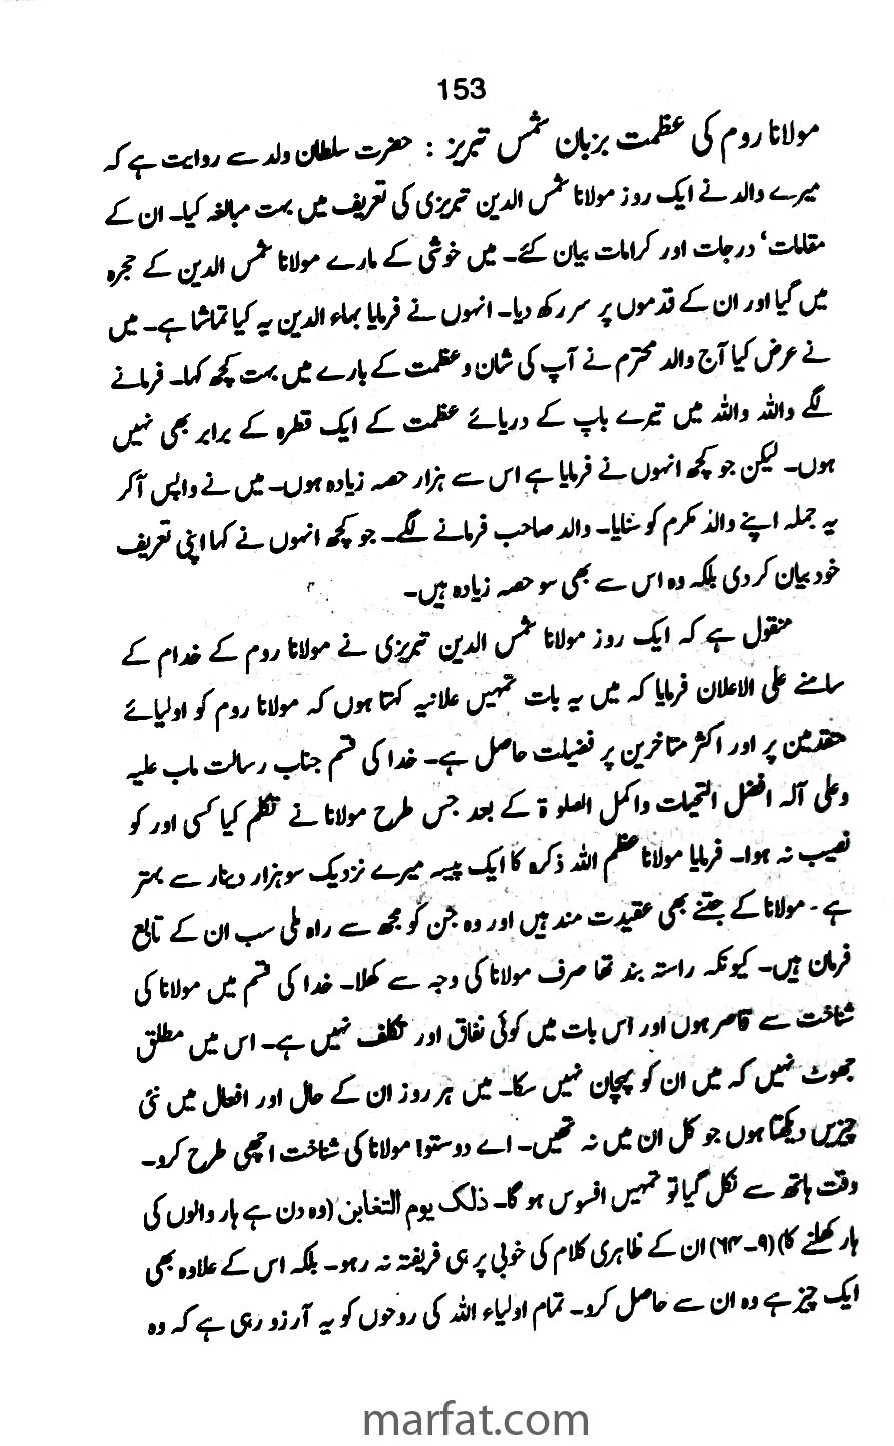 153
مولانا روم کی عظمت بزبان شمس تبریز : حضرت سلطان ولد سے روایت ہے کہ
میرے والد نے ایک روز مولانا شمس الدین تبریزی کی تعریف میں بہت مبالغہ کیا۔ ان کے
مقامات‘ درجات اور کرامات بیان کئے۔ میں خوشی کے مارے مولانا شمس الدین کے حجرہ
میں گیا اور ان کے قدموں پر سر رکھ دیا۔ انہوں نے فرمایا بہاء الدین یہ کیا تماشا ہے۔ میں
نے عرض کیا آج والد محترم نے آپ کی شان و عظمت کے بارے میں بہت کچھ کہا۔ فرمانے
لگے واللہ واللہ میں تیرے باپ کے دریائے عظمت کے ایک قطرہ کے برابر بھی نہیں
ہوں۔ لیکن جو کچھ انہوں نے فرمایا ہے اس سے ہزار حصہ زیادہ ہوں۔ میں نے واپس آکر
یہ جملہ اپنے والد مکرم کو سنایا۔ والد صاحب فرمانے لگے۔ جو کچھ انہوں نے کہا اپنی تعریف
خود بیان کردی بلکہ وہ اس سے بھی سو حصہ زیادہ ہیں۔
منقول ہے کہ ایک روز مولانا شمس الدین تبریزی نے مولانا روم کے خدام کے
سامنے علی الاعلان فرمایا کہ میں یہ بات تمہیں علانیہ کہتا ہوں کہ مولانا روم کو اولیائے
متقدمین پر اور اکثر متاخرین پر فضیلت حاصل ہے۔ خدا کی قسم جناب رسالت ماب علیہ
وعلی آلہ افضل التحیات واکمل الصلوٰۃ کے بعد جس طرح مولانا نے تکلم کیا کسی اور کو
نصیب نہ ہوا۔ فرمایا مولانا عظم اللہ ذکرہ کا ایک پیسہ میرے نزدیک سو ہزار دینار سے بہتر
ہے۔ مولانا کے جتنے بھی عقیدت مند ہیں اور وہ جن کو مجھ سے راہ ملی سب ان کے تابع
فرمان ہیں۔ کیونکہ راستہ بند تھا صرف مولانا کی وجہ سے کھلا۔ خدا کی قسم میں مولانا کی
شناخت سے قاصر ہوں اور اس بات میں کوئی نفاق اور تکلف نہیں ہے۔ اس میں مطلق
جھوٹ نہیں کہ میں ان کو پہچان نہیں سکا۔ میں ہر روز ان کے حال اور افعال میں نئی
چیزیں دیکھتا ہوں جو کل ان میں نہ تھیں۔ اے دوستو! مولانا کی شناخت اچھی طرح کرو۔
وقت ہاتھ سے نکل گیا تو تمہیں افسوس ہو گا۔ ذلک یوم التغابن (وہ دن ہے ہار والوں کی
ہار کھلنے کا) (۹۔۶۴) ان کے ظاہری کلام کی خوبی پر ہی فریفتہ نہ رہو۔ بلکہ اس کے علاوہ بھی
ایک چیز ہے وہ ان سے حاصل کرو۔ تمام اولیاء اللہ کی روحوں کو یہ آرزو رہی ہے کہ وہ
marfat.com